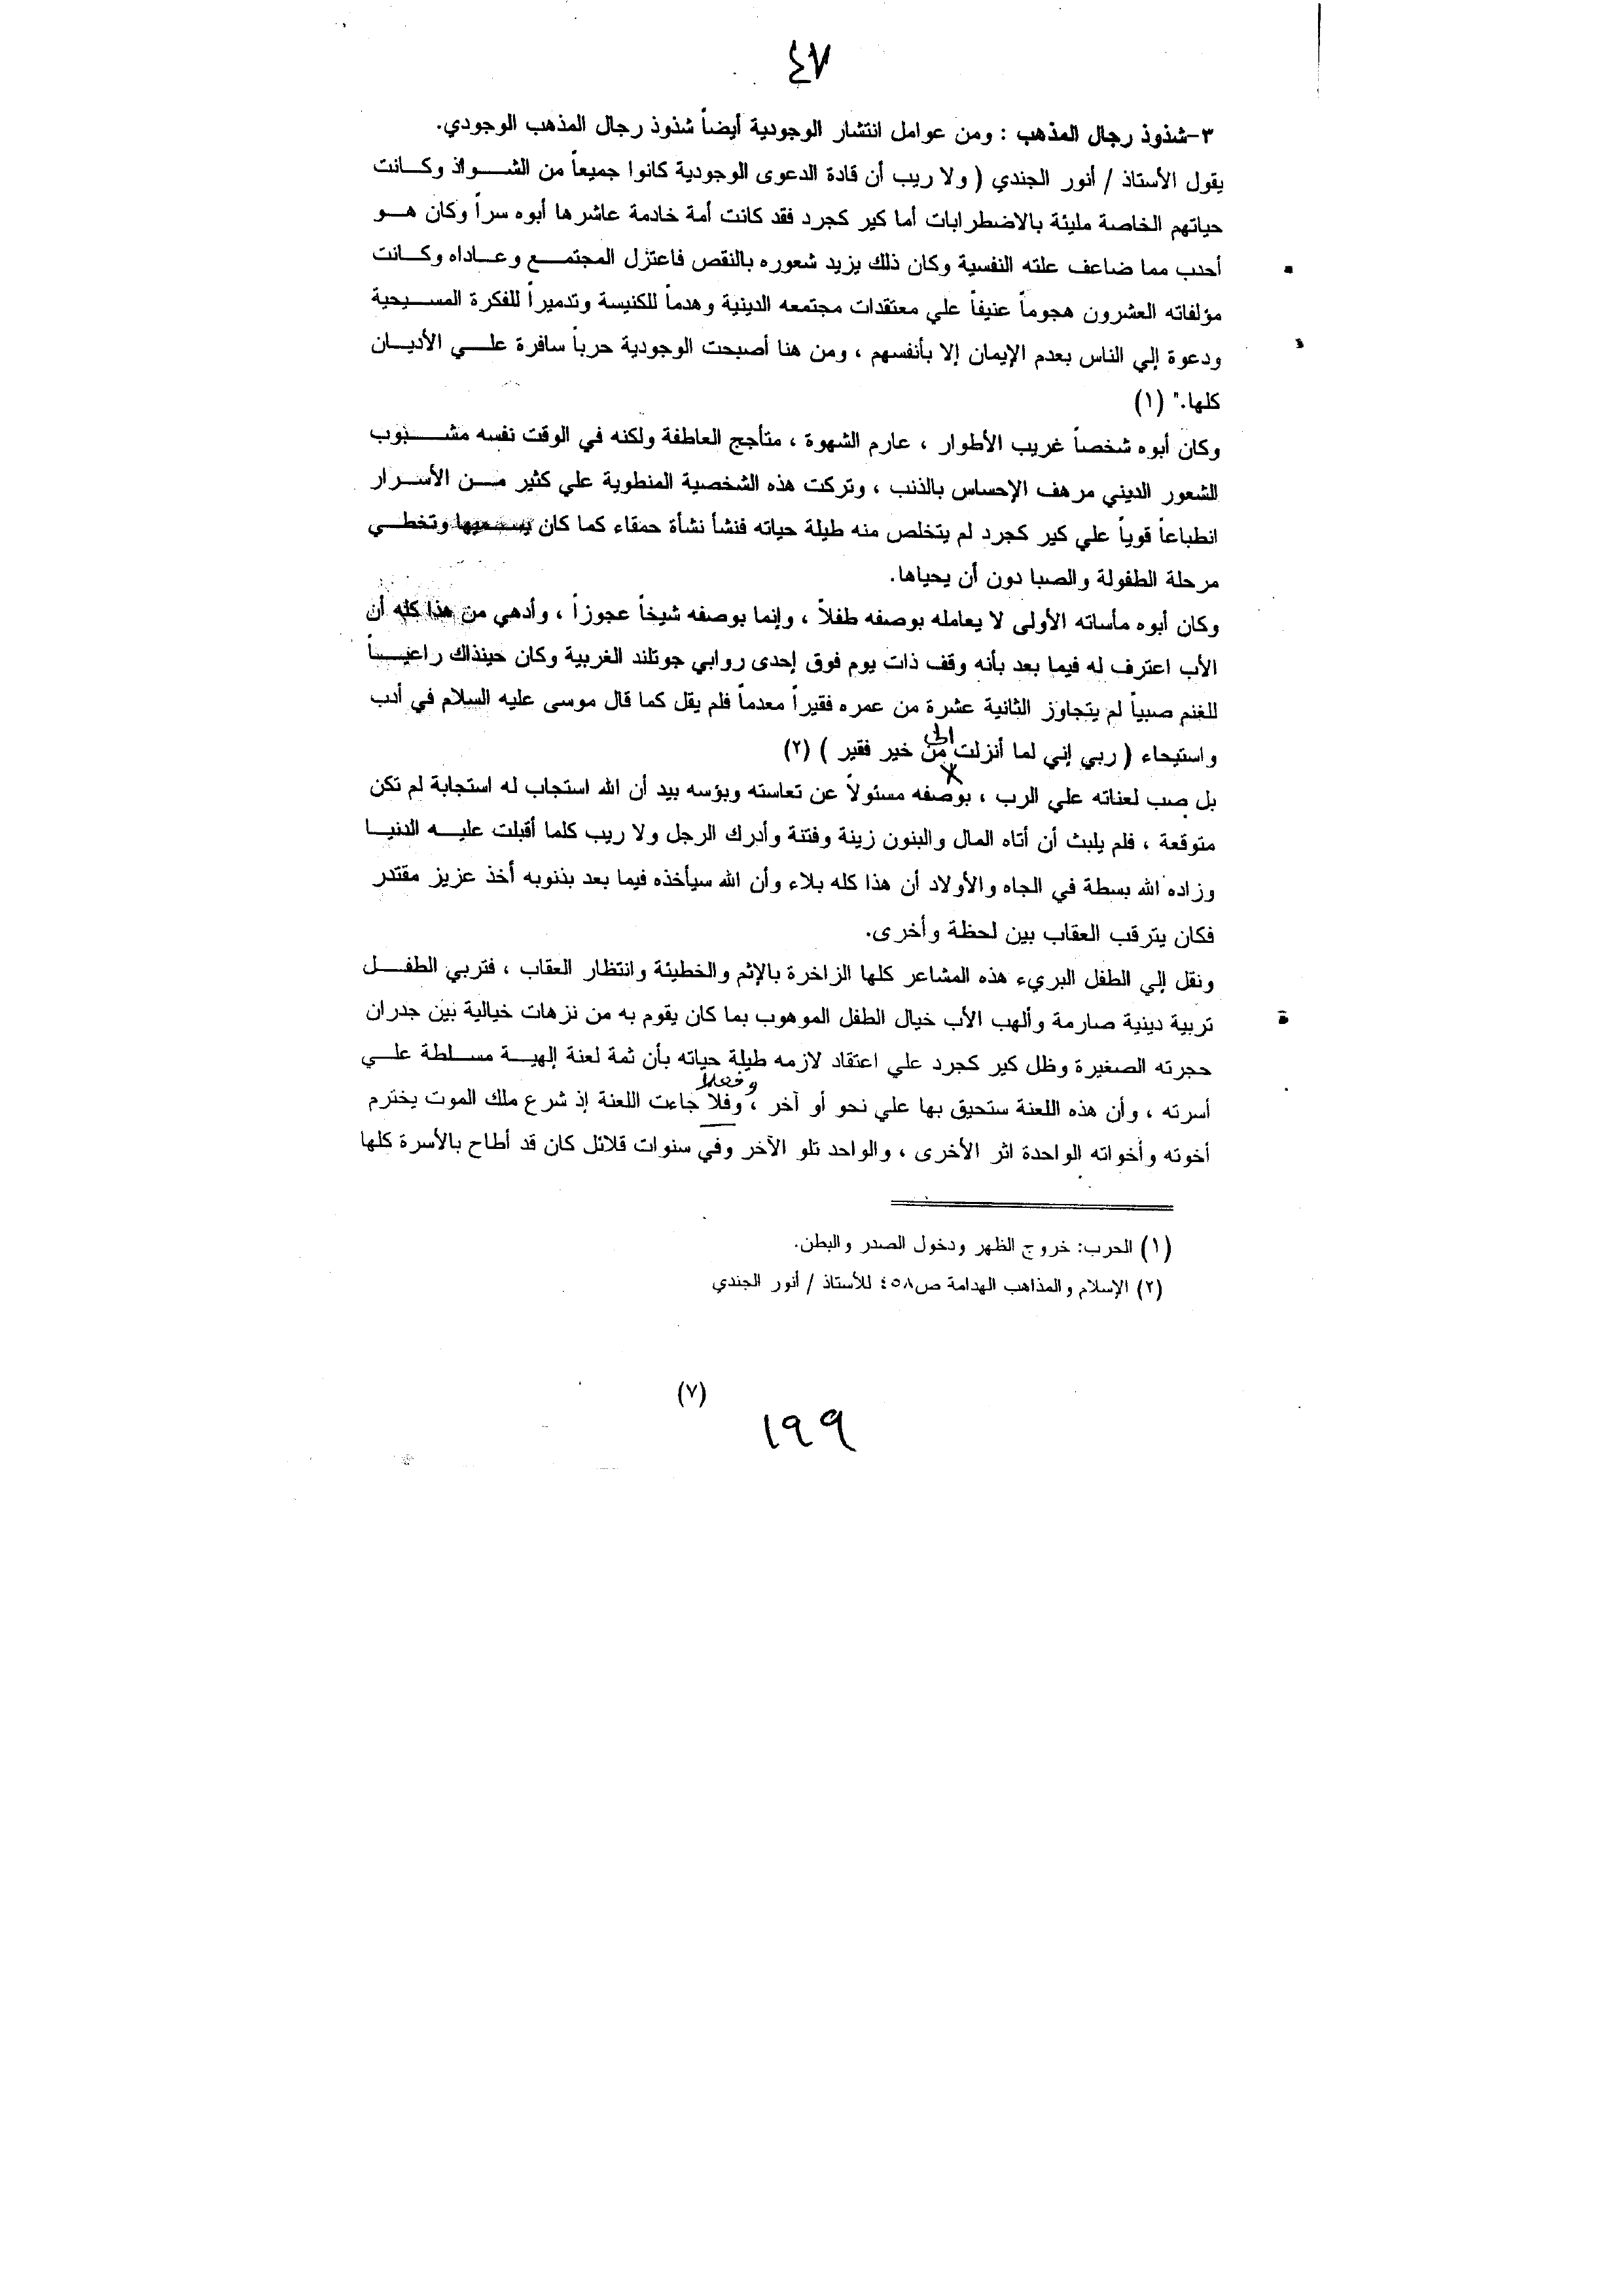 ٤٧
٣-شذوذ رجال المذهب : ومن عوامل انتشار الوجودية أيضاً شذوذ رجال المذهب الوجودي.
يقول الأستاذ / أنور الجندي ( ولا ريب أن قادة الدعوى الوجودية كانوا جميعاً من الشواذ وكانت
حياتهم الخاصة مليئة بالاضطرابات أما كير كجرد فقد كانت أمة خادمة عاشرها أبوه سراً وكان هو
أحدب مما ضاعف علته النفسية وكان ذلك يزيد شعوره بالنقص فاعتزل المجتمع وعاداه وكانت
مؤلفاته العشرون هجوماً عنيفاً علي معتقدات مجتمعه الدينية وهدماً للكنيسة وتدميراً للفكرة المسيحية
ودعوة إلي الناس بعدم الإيمان إلا بأنفسهم ، ومن هنا أصبحت الوجودية حرباً سافرة علي الأديان
كلها." (١)
وكان أبوه شخصاً غريب الأطوار ، عارم الشهوة ، متأجج العاطفة ولكنه في الوقت نفسه مشبوب
الشعور الديني مرهف الإحساس بالذنب ، وتركت هذه الشخصية المنطوية علي كثير من الأسرار
انطباعاً قوياً علي كير كجرد لم يتخلص منه طيلة حياته فنشأ نشأة حمقاء كما كان يسميها وتخطي
مرحلة الطفولة والصبا دون أن يحياها.
وكان أبوه مأساته الأولى لا يعامله بوصفه طفلاً ، وإنما بوصفه شيخاً عجوزاً ، وأدهي من هذا كله أن
الأب اعترف له فيما بعد بأنه وقف ذات يوم فوق إحدى روابي جوتلند الغربية وكان حينذاك راعياً
للغنم صبياً لم يتجاوز الثانية عشرة من عمره فقيراً معدماً فلم يقل كما قال موسى عليه السلام في أدب
إلي
واستيحاء ( ربي إني لما أنزلت من خير فقير ) (٢)
بل صب لعناته علي الرب ، بوصفه مسئولاً عن تعاسته وبؤسه بيد أن الله استجاب له استجابة لم تكن
متوقعة ، فلم يلبث أن أتاه المال والبنون زينة وفتنة وأدرك الرجل ولا ريب كلما أقبلت عليه الدنيا
وزاده الله بسطة في الجاه والأولاد أن هذا كله بلاء وأن الله سيأخذه فيما بعد بذنوبه أخذ عزيز مقتدر
فكان يترقب العقاب بين لحظة وأخرى.
ونقل إلي الطفل البريء هذه المشاعر كلها الزاخرة بالإثم والخطيئة وانتظار العقاب ، فتربي الطفل
تربية دينية صارمة وألهب الأب خيال الطفل الموهوب بما كان يقوم به من نزهات خيالية بين جدران
حجرته الصغيرة وظل كير كجرد علي اعتقاد لازمه طيلة حياته بأن ثمة لعنة إلهية مسلطة علي
وفعلا
أسرته ، وأن هذه اللعنة ستحيق بها علي نحو أو آخر ، وفلا جاءت اللعنة إذ شرع ملك الموت يخترم
أخوته وأخواته الواحدة اثر الأخرى ، والواحد تلو الآخر وفي سنوات قلائل كان قد أطاح بالأسرة كلها
(١) الحرب: خروج الظهر ودخول الصدر والبطن.
(٢) الإسلام والمذاهب الهدامة ص٤٥٨ للأستاذ / أنور الجندي
(٧)
١٩٩